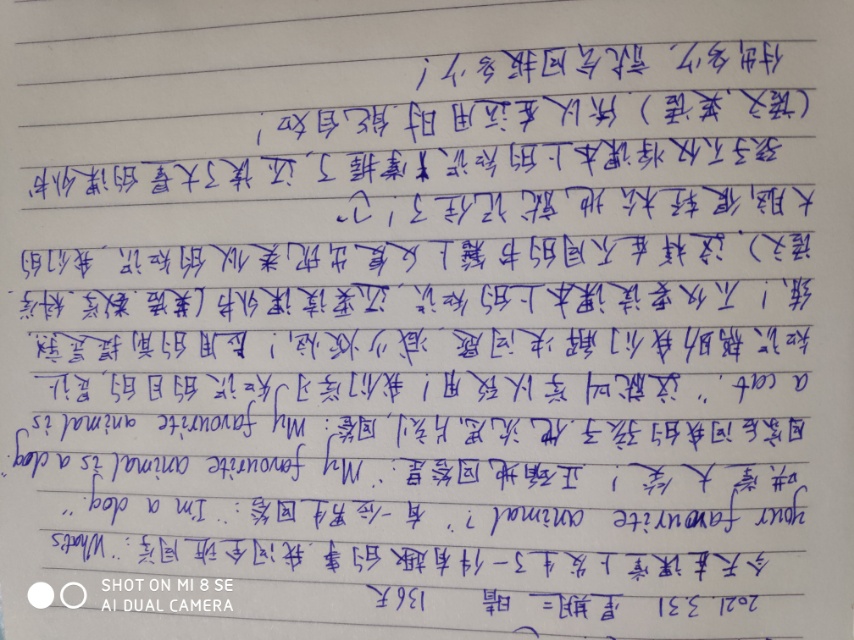 2021.3.31 星期三 晴 136天
今天在课堂上发生了一件有趣的事,我问全班同学:"What's
your favourite animal?" 有一位男生回答:"I'm a dog."
哄堂大笑!正确地回答是:"My favourite animal is a dog."
回家后问我的孩子,他沉思片刻,回答:My favourite animal is
a cat."这就叫学以致用!我们学习知识的目的,是让
知识帮助我们解决问题,减少烦恼!应用的前提是熟
练!不仅要读课本上的知识,还要读课外书(英语.数学.科学.
语文).这样在不同的书籍上反复出现类似的知识,我们的
大脑,很轻松地就记住了!
孩子不仅将课本上的知识掌握了,还读了大量的课外书
(语文、英语)所以在运用时,能自如!
付出多少,就会回报多少!
SHOT ON MI 8 SE
AI DUAL CAMERA